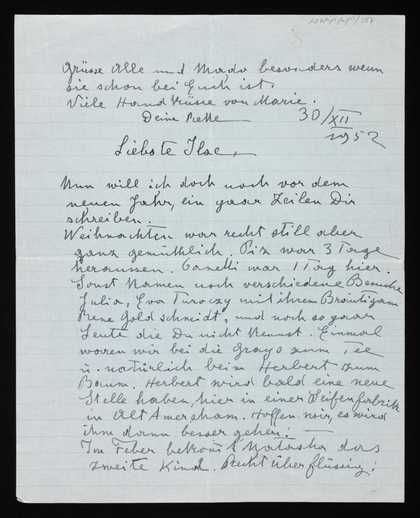 Grüsse Alle und Mado besonders wenn
sie schon bei Euch ist.
Viele Handküsse von Marie.
Deine
30/XII
1952
Liebste Ilse,
Nun will ich doch noch vor dem
neuen Jahr, ein paar Zeilen Dir
schreiben.
Weihnachten war recht still aber
ganz gemütlich. Piz war 3 Tage
heraussen. Canetti war 1 Tag hier.
Sonst kamen noch verschiedene Besuche
Julia, Eva Turoczy mit ihrem Bräutigam
Rene Goldschmidt, und noch so paar
Leute die Du nicht kennst. Einmal
waren wir bei die Grays zum Tee
u. natürlich beim Herbert zum
Baum. Herbert wird bald eine neue
Stelle haben, hier in einer Seifenfabrik
in Alt Amersham. Hoffen wir, es wird
ihm dann besser gehen! —
Im Feber bekommt Natasha das
zweite Kind. Recht überflüssig!